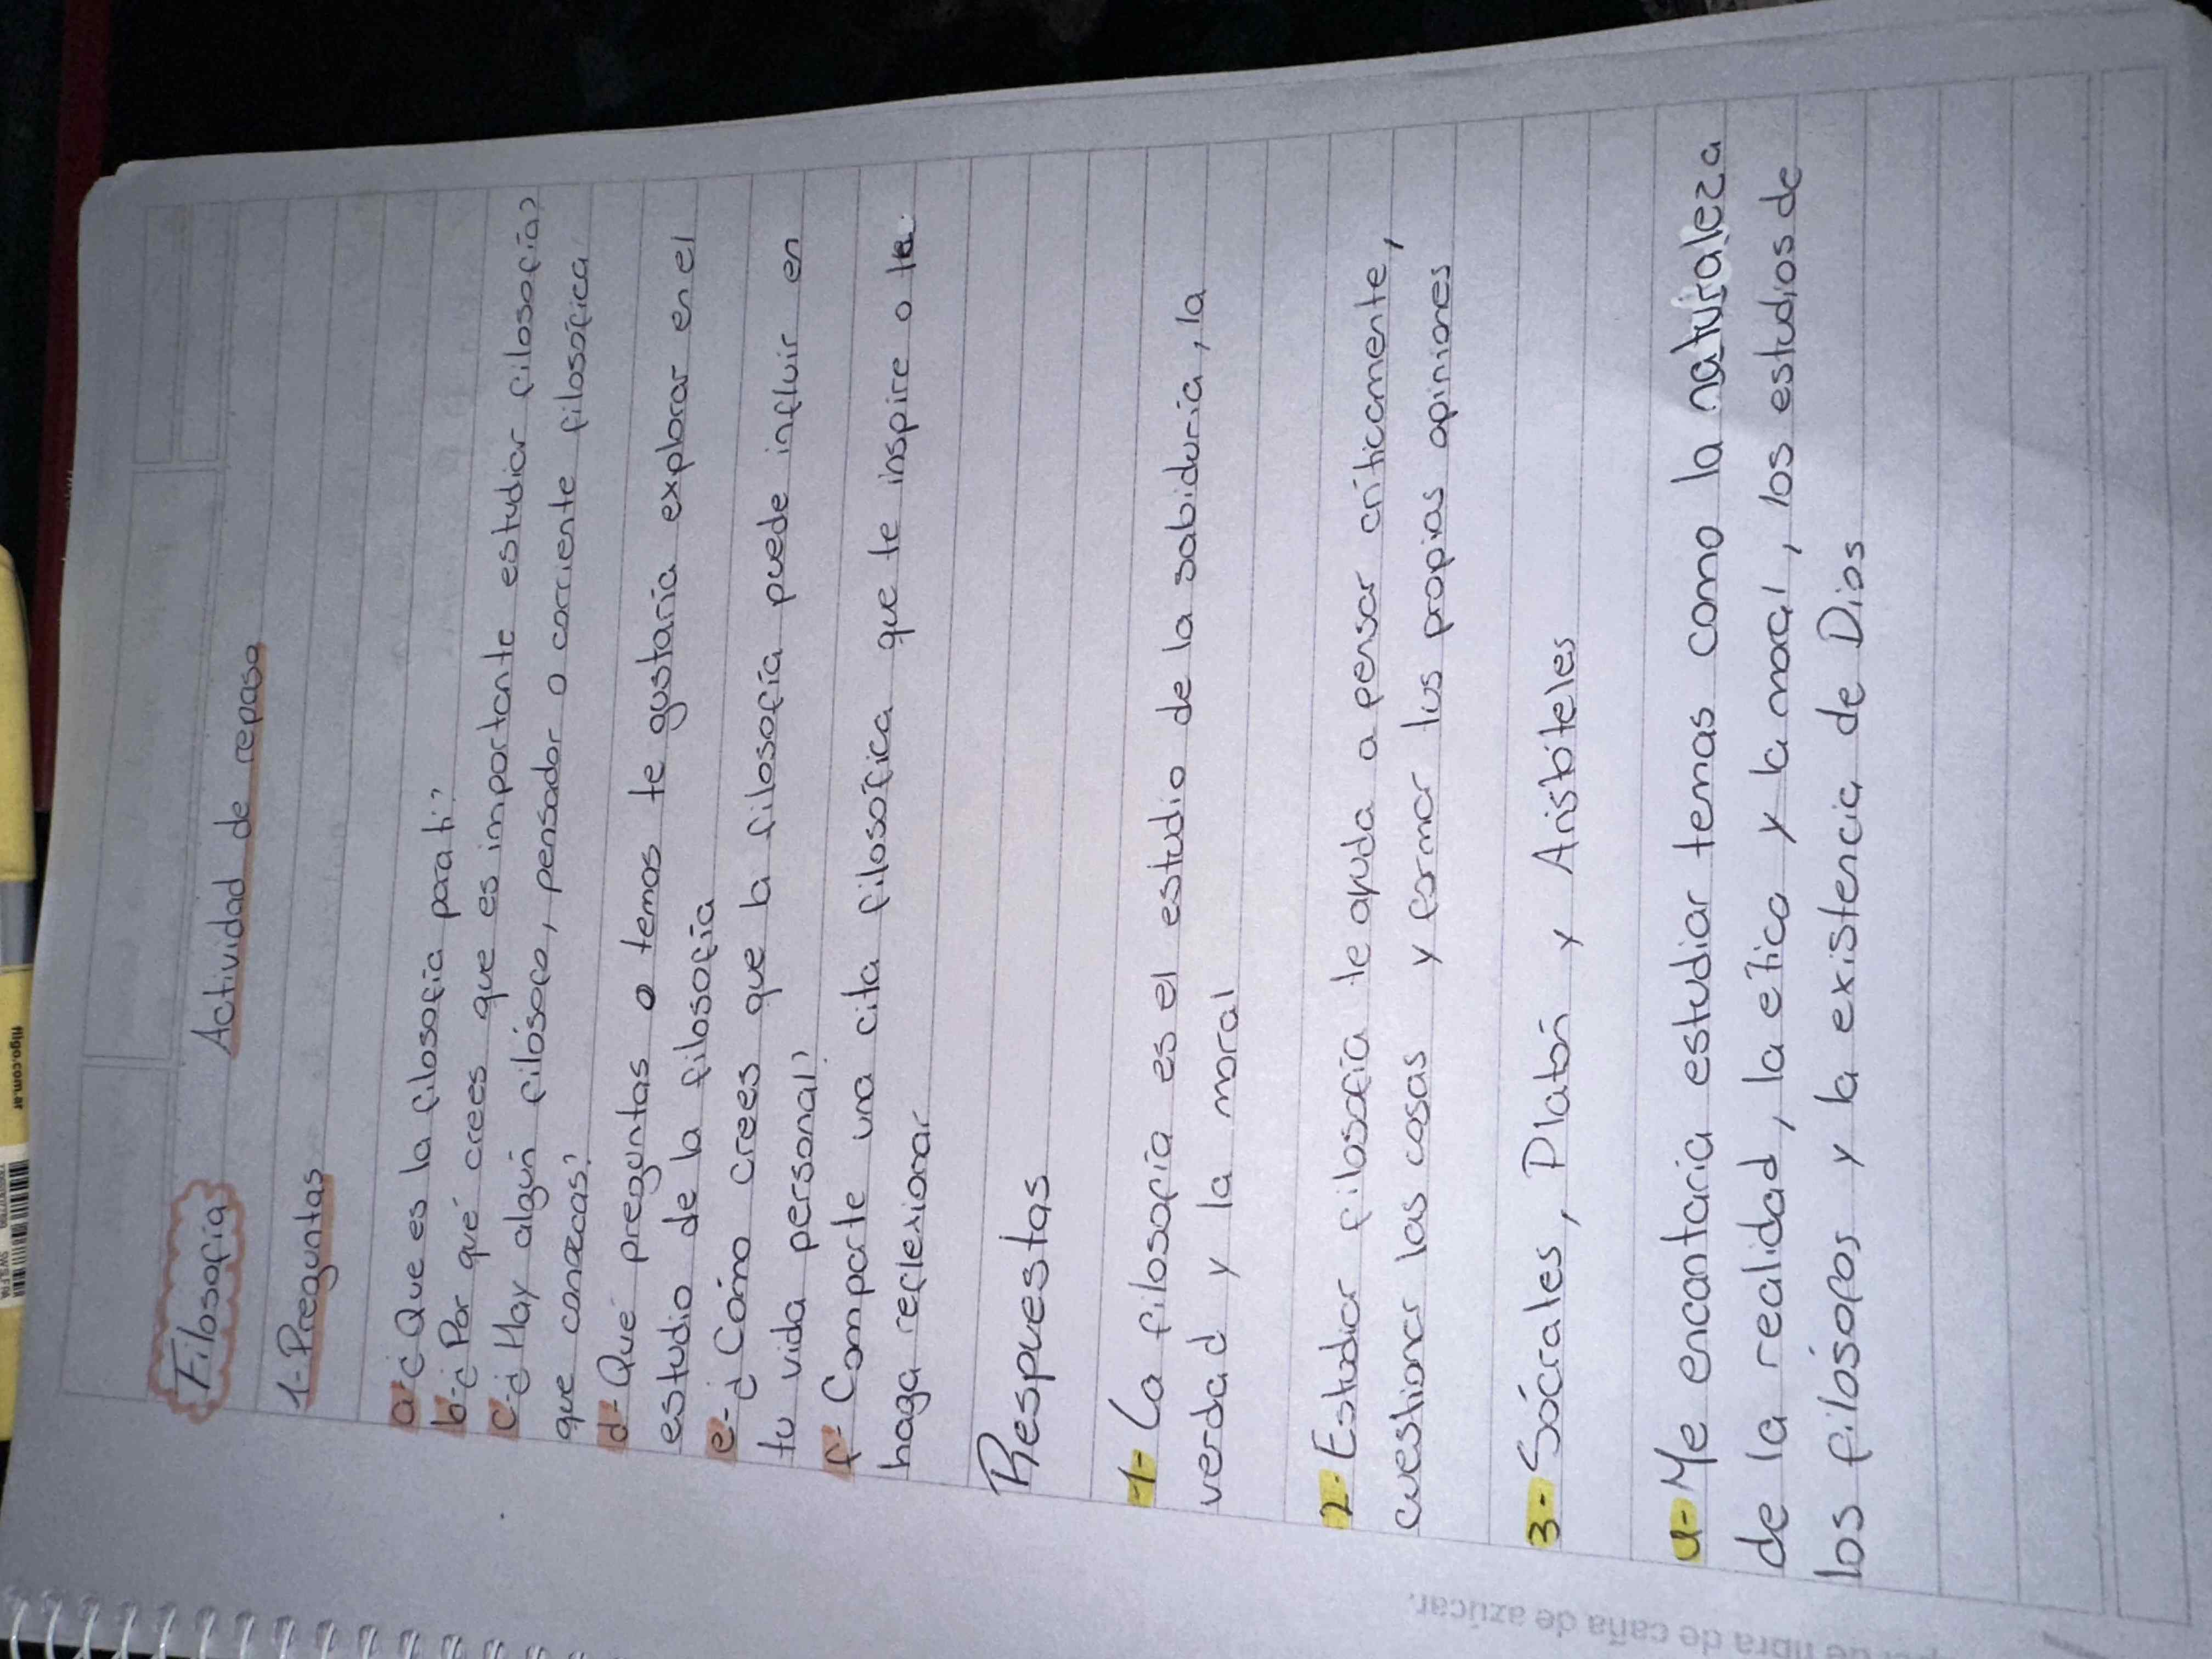 Filosofía
Actividad de repaso
1-Preguntas
a-¿Que es la filosofía para ti?
b-¿Por qué crees que es importante estudiar filosofía?
c-¿Hay algún filósofo, pensador o corriente filosófica
que conozcas?
d-Qué preguntas o temas te gustaría explorar en el
estudio de la filosofía
e-¿Cómo crees que la filosofía puede influir en
tu vida personal?
f- Comparte una cita filosófica que te inspire o te
haga reflexionar
Respuestas
1- La filosofía es el estudio de la sabiduría, la
verdad y la moral
2- Estudiar filosofía te ayuda a pensar críticamente,
cuestionar las cosas y formar tus propias opiniones
3- Sócrates, Platón y Aristóteles
4- Me encantaria estudiar temas como la naturaleza
de la realidad, la etica y la moral, los estudios de
los filósofos y la existencia de Dios
de fibra de caña de azúcar.
rigo.com.ar